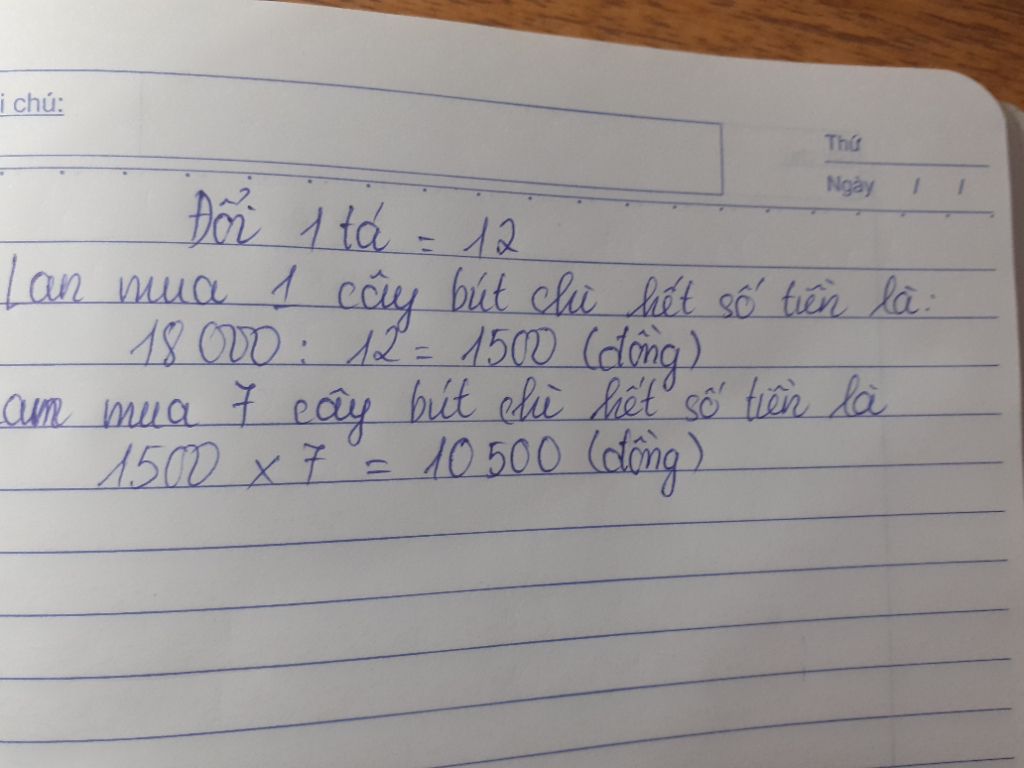 i chú:
Thứ
Ngày / /
Đổi 1 tá = 12
Lan mua 1 cây bút chì hết số tiền là:
18 000 : 12 = 1500 (đồng)
am mua 7 cây bút chì hết số tiền là
1500 x 7 = 10 500 (đồng)